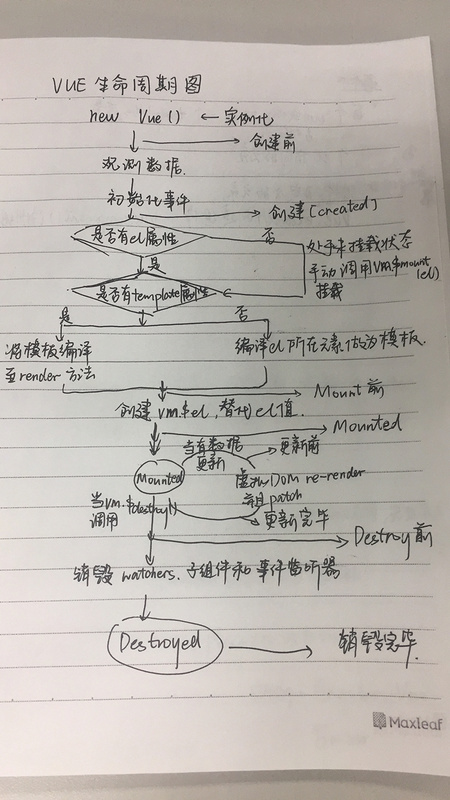 VUE 生命周期图
new Vue() ← 实例化
创建前
观测数据.
初始化事件
创建[created]
是否有el属性
否
处于未挂载状态
手动调用vm.$mount
(el)
挂载
是
是否有template属性
是
否
将模板编译
至render方法
编译el所在元素做为模板.
Mount前
创建vm.$el,替代el值.
Mounted
当有数据
更新
更新前
Mounted
虚拟DOM re-render
patch
当vm.$destroy()
调用
更新完毕
Destroy前
销毁 watchers.子组件和事件监听器
Destroyed
销毁完毕.
Maxleaf